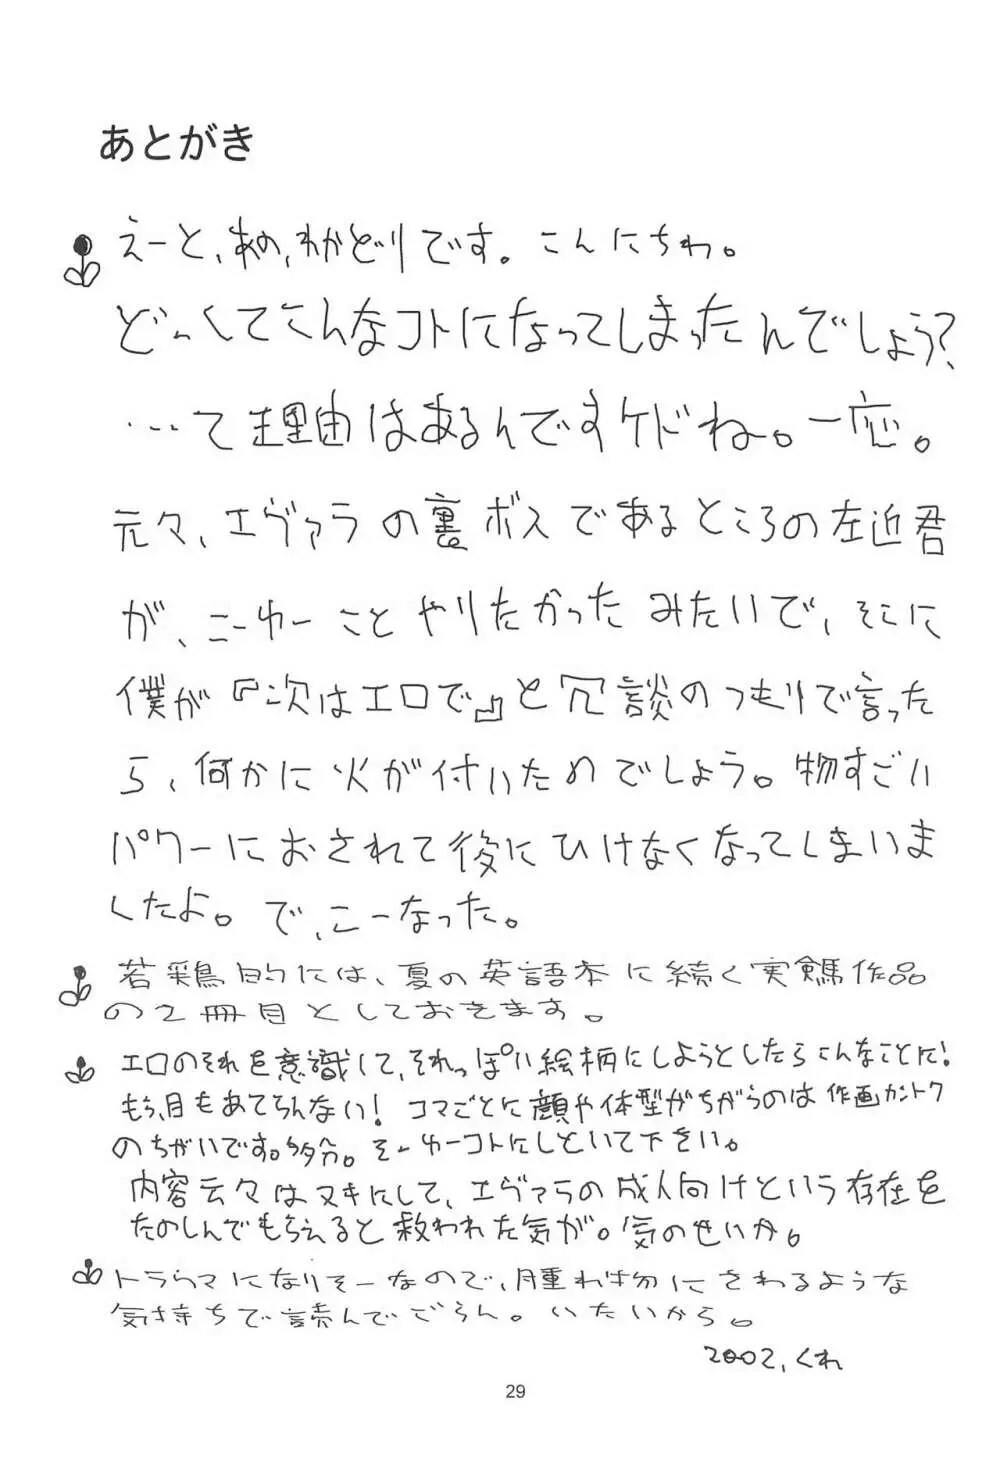 あとがき
えーと、あの、わかどりです。こんにちわ。
どーしてこんなコトになってしまったんでしょう?
…て理由はあるんですケドね。一応。
元々、エヴァラの裏ボスであるところの左近君
が、こーゆーことやりたかったみたいで、そこに
僕が『次はエロで』と冗談のつもりで言った
ら、何かに火が付いたのでしょう。物すごい
パワーにおされて後にひけなくなってしまいま
したよ。で、こーなった。
若鶏的には、夏の英語本に続く実験作品
の2冊目としておきます。
エロのそれを意識して、それっぽい絵柄にしようとしたらこんなことに!
もう、目もあてらんない! コマごとに顔や体型がちがうのは作画カントク
のちがいです。多分。そーゆーコトにしといて下さい。
内容云々はヌキにして、エヴァラの成人向けという存在を
たのしんでもらえると救われた気が。気のせいか。
トラウマになりそーなので、腫れ物にさわるような
気持ちで読んでごらん。いたいから。
2002, くれ
29